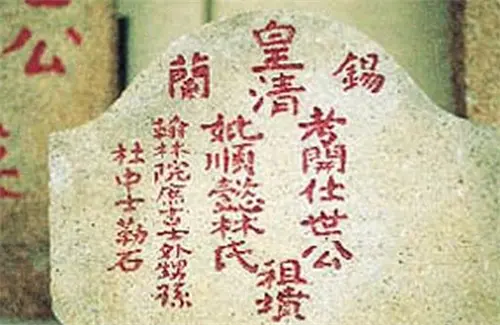 錫蘭
皇清
考開仕世公
妣順懿林氏
祖墳
翰林院庶吉士外甥孫
杜中士勒石
公